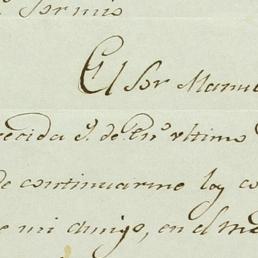 Sor mio
El Sor Manu
recida pr. de Eno. ultimo
de continuarme loy co
e mi amigo, en el me